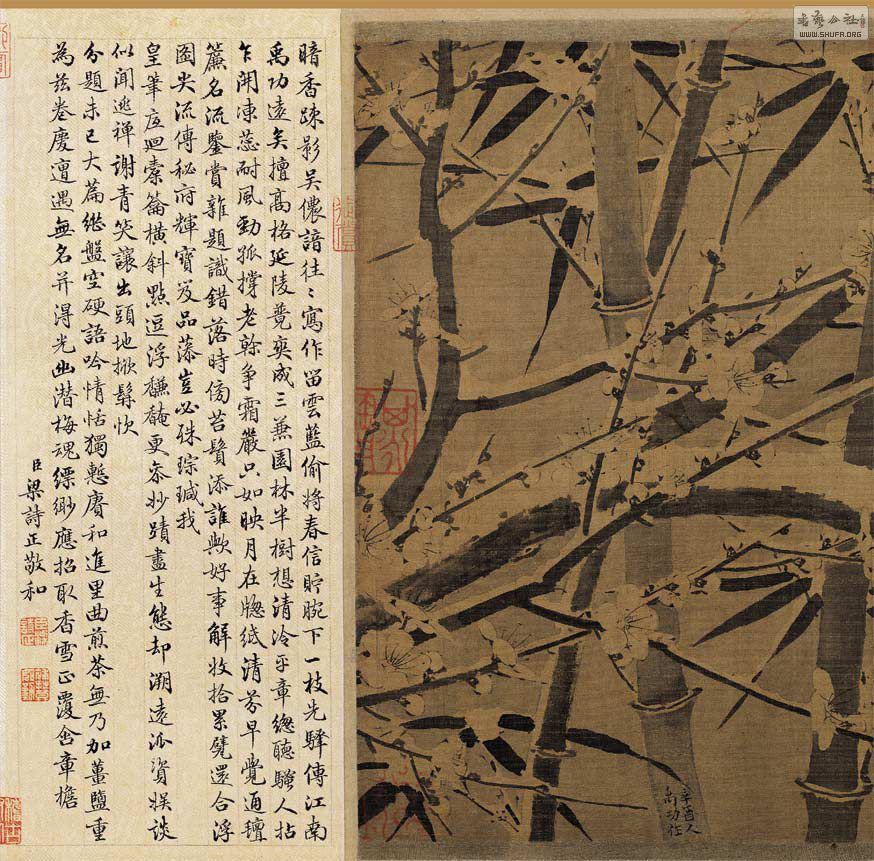 書藝公社
WWW.SHUFA.ORG
辛酉人
禹功作
暗香疎影吴儂諳往〻寫作留雲藍偷將春信貯腕下一枝先驛傳江南
禹功遠矣擅高格延陵竟爽成三兼園林半樹想清泠平章總聽騷人拈
乍開凍蕊耐風勁孤撑老榦争霜嚴只如映月在牕紙清芬早覺通
簾名流鑒賞雜題識錯落時傍苔鬢添誰歟好事解收拾累甓還合浮
圖尖流傳秘府輝寶笈品藻豈必殊琮瑊我
皇筆底迴橐籥横斜點逗浮馦馣更忝抄蹟畫生態却溯遠派資娱談
似聞逃禪謝青笑讓出頭地掀髯忺
分題未已大篇繼盤空硬語吟情恬獨慙賡和進里曲煎茶無乃加薑鹽重
為兹卷慶遭遇無名并得光幽潜梅魂縹緲應招取香雪正覆含章檐
臣梁詩正敬和